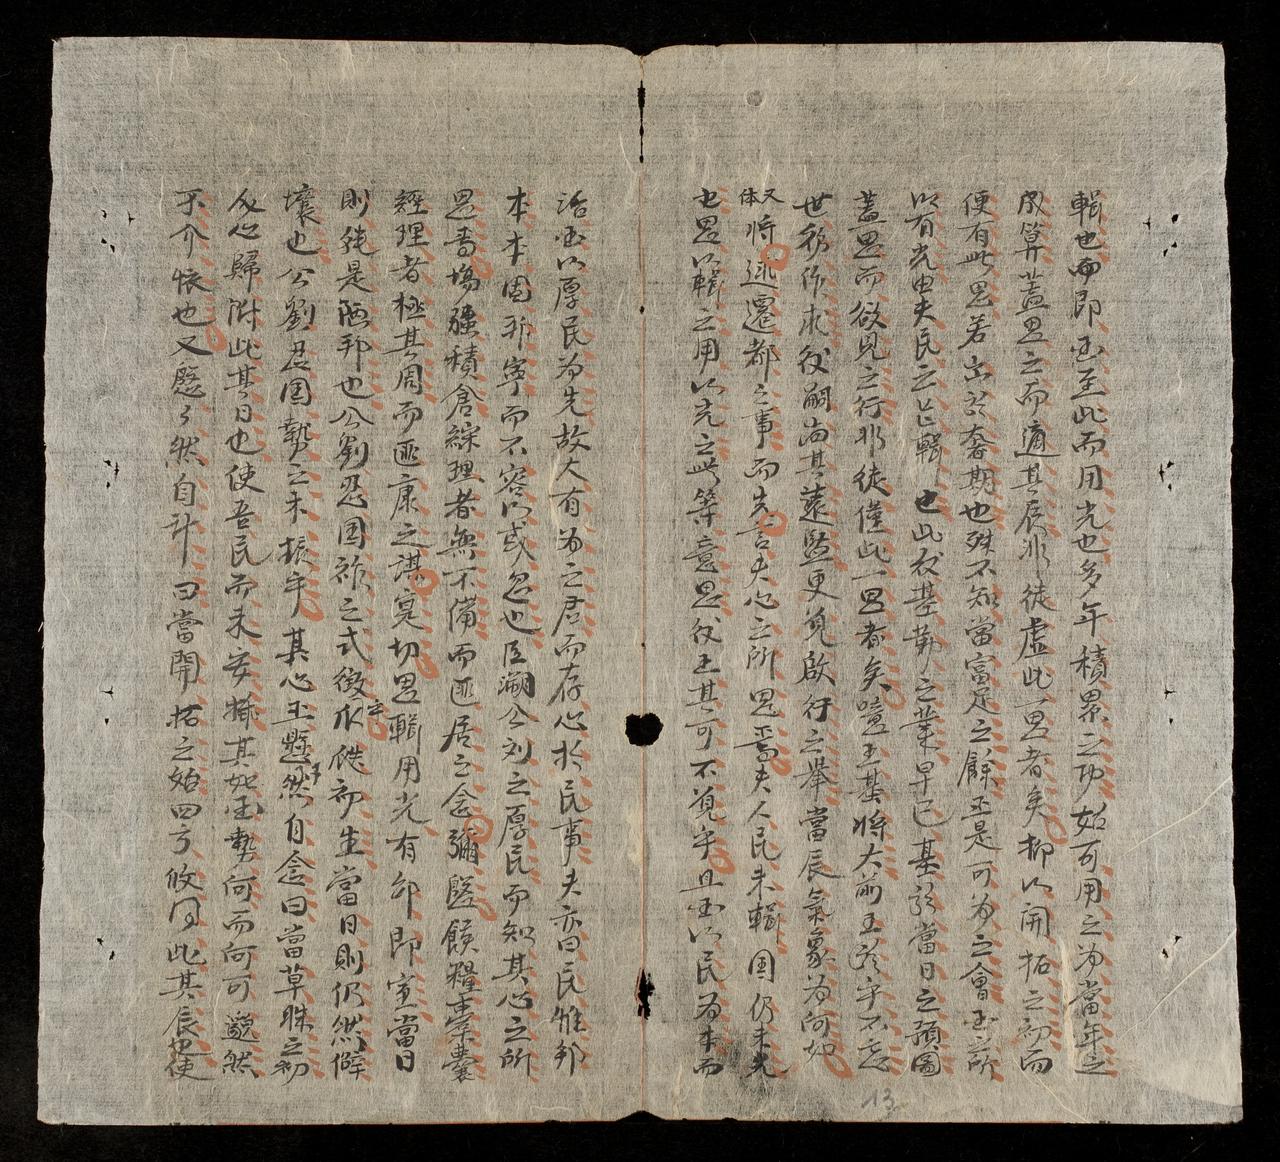 輯也而即𡈽至此而用光也多年積累之功始可用之為當年之
成算蓋思之而適其辰非徒虛此一思者矣抑以開拓之初而
便有此思若出於奢期也殊不知當富足之餘正是可為之會𡈽所
以有光由夫民之已輯也此設基第之業早已基於當日之預圖
蓋思而欲見之行非徒僅此一思者矣噫王基將大前王字不忘
世務作求後嗣尚其遠監更覓啟行之舉當辰氣象為何如
又体將述遷都之事而先言夫心之所思焉夫人民未輯國仍未光
也思以輯之用以光之此等意思後王其可不覓乎且𡈽以民為本而
治𡈽以厚民為先故大有為之君而存心於民事夫亦曰民惟邦
本本固邦寧而不容以或忽也臣溯公刘之厚民而知其心之所
思焉場疆積倉綜理者無不備而匪居之念彌慇餱糧橐囊
經理者極其周而匪康之謀寔切思輯用光有邰即室當日
則純是陋邦也公劉忍國祚之式微字瓜瓞初生當日則仍然僻
壤也公劉君國勢之未振乎其心王懸然自念曰當草昧之初
人心歸附此其日也使吾民而未安擾其如𡈽勢何而何可邈然
不介懷也又慇々然自計曰當開拓之始四方攸同此其辰也使